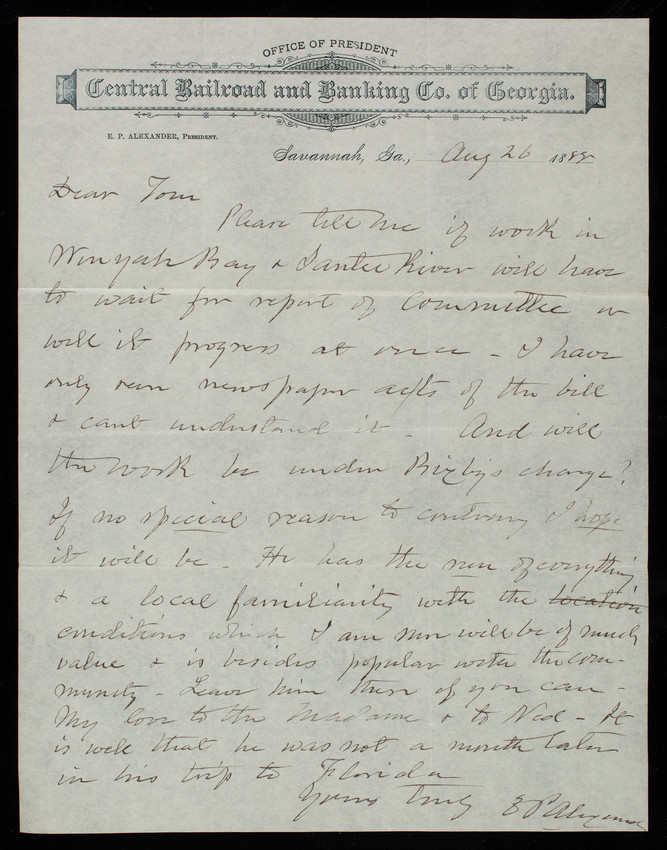 OFFICE OF PRESIDENT
Central Railroad and Banking Co. of Georgia.
E. P. ALEXANDER, PRESIDENT.
Savannah, Ga., Aug 26 1888
Dear Tom
Please tell me if work in
Winyah Bay & Santee River will have
to wait for report of Committee or
will it progress at once - I have
only seen newspaper accts of the bill
& cant understand it - And will
the work be under Bixbys charge?
If no special reason to contrary I hope
it will be - He has the run of everything
& a local familiarity with the location
conditions which I am sure will be of much
value & is besides popular with the com-
munity - Leave him there if you can -
My love to the Madame & to Ned - It
is well that he was not a month later
in his trip to Florida
Yours Truly E P Alexander